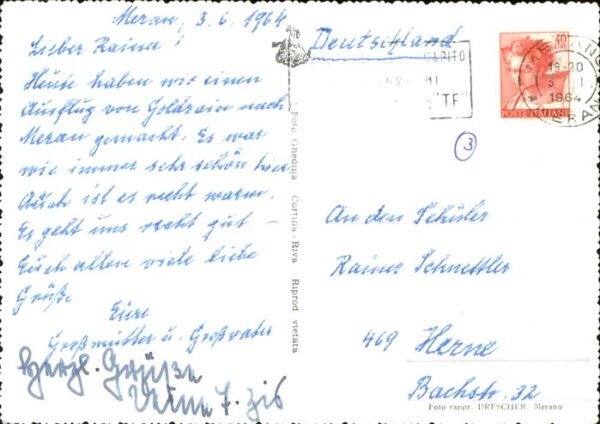 Meran, 3. 6. 1964
Lieber Rainer!
Heute haben wir einen
Ausflug von Goldrain nach
Meran gemacht. Es war
wie immer sehr schön hier
Auch ist es recht warm.
Es geht uns recht gut –
Euch allen viele liebe
Grüße
Eure
Großmutter u. Großvater
Herzl. Grüße
Deutschland
CAPITO
"TF"
40
19-20
1964
POSTE ITALIANE
MERANO
3
Foto Ghedina Cortina - Riva Riprod vietata
An den Schüler
Rainer Schnettler
469 Herne
Bachstr. 32
Foto rappr. DRESCHER Merano